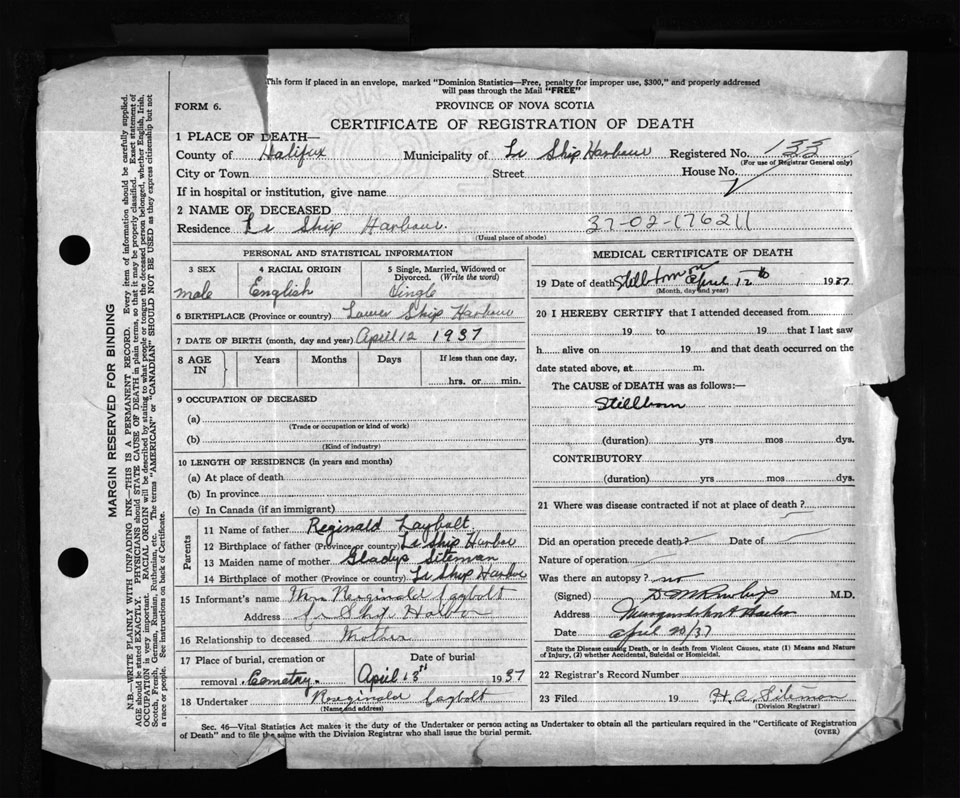 This form if placed in an envelope, marked "Dominion Statistics—Free, penalty for improper use, $300," and properly addressed
will pass through the Mail "FREE"
FORM 6.
PROVINCE OF NOVA SCOTIA
CERTIFICATE OF REGISTRATION OF DEATH
1 PLACE OF DEATH—
County of Halifax Municipality of Lr Ship Harbour Registered No. 133
(For use of Registrar General only)
City or Town Street House No.
If in hospital or institution, give name
2 NAME OF DECEASED
Residence Lr Ship Harbour. 37-02-176211
(Usual place of abode)
PERSONAL AND STATISTICAL INFORMATION
3 SEX 4 RACIAL ORIGIN 5 Single, Married, Widowed or
Divorced. (Write the word)
male English Single
6 BIRTHPLACE (Province or country) Lower Ship Harbour
7 DATE OF BIRTH (month, day and year) April 12 1937
8 AGE IN Years Months Days If less than one day,
hrs. or min.
9 OCCUPATION OF DECEASED
(a)
(Trade or occupation or kind of work)
(b)
(Kind of industry)
10 LENGTH OF RESIDENCE (in years and months)
(a) At place of death
(b) In province
(c) In Canada (if an immigrant)
Parents
11 Name of father Reginald Laybolt
12 Birthplace of father (Province or country) Lr Ship Harbor
13 Maiden name of mother Gladys Siteman
14 Birthplace of mother (Province or country) Lr Ship Harbor
15 Informant's name Mrs Reiginald Laybolt
Address Lr Shp. Harbor
16 Relationship to deceased Mother
17 Place of burial, cremation or Date of burial
removal Cemetry. April 13th 1937
18 Undertaker Reiginald Laybolt
(Name and address)
MEDICAL CERTIFICATE OF DEATH
19 Date of death Stillborn on April 12th 1937
(Month, day and year)
20 I HEREBY CERTIFY that I attended deceased from
19 to 19 that I last saw
h alive on 19 and that death occurred on the
date stated above, at m.
The CAUSE of DEATH was as follows:—
Stillborn
(duration) yrs mos dys.
CONTRIBUTORY
(duration) yrs mos dys.
21 Where was disease contracted if not at place of death?
Did an operation precede death? Date of
Nature of operation
Was there an autopsy? no
(Signed) M.D.
Address Musquodoboit Harbor
Date April 20/37
State the Disease causing Death, or in death from Violent Causes, state (1) Means and Nature
of Injury, (2) whether Accidental, Suicidal or Homicidal.
22 Registrar's Record Number
23 Filed 19 H. A. Siteman
(Division Registrar)
Sec. 46—Vital Statistics Act makes it the duty of the Undertaker or person acting as Undertaker to obtain all the particulars required in the "Certificate of Registration
of Death" and to file the same with the Division Registrar who shall issue the burial permit. (OVER)
MARGIN RESERVED FOR BINDING
N.B.—WRITE PLAINLY WITH UNFADING INK—THIS IS A PERMANENT RECORD. Every item of information should be carefully supplied.
AGE should be stated EXACTLY. PHYSICIANS should STATE CAUSE OF DEATH in plain terms, so that it may be properly classified. Exact statement of
OCCUPATION is very important. RACIAL ORIGIN will be described by stating to what people or tongue the deceased person belonged, whether English, Irish,
Scotch, French, German, Russian, Ruthenian, etc. The terms "AMERICAN" or "CANADIAN" SHOULD NOT BE USED as they express citizenship but not
a race or people. See instructions on back of Certificate.